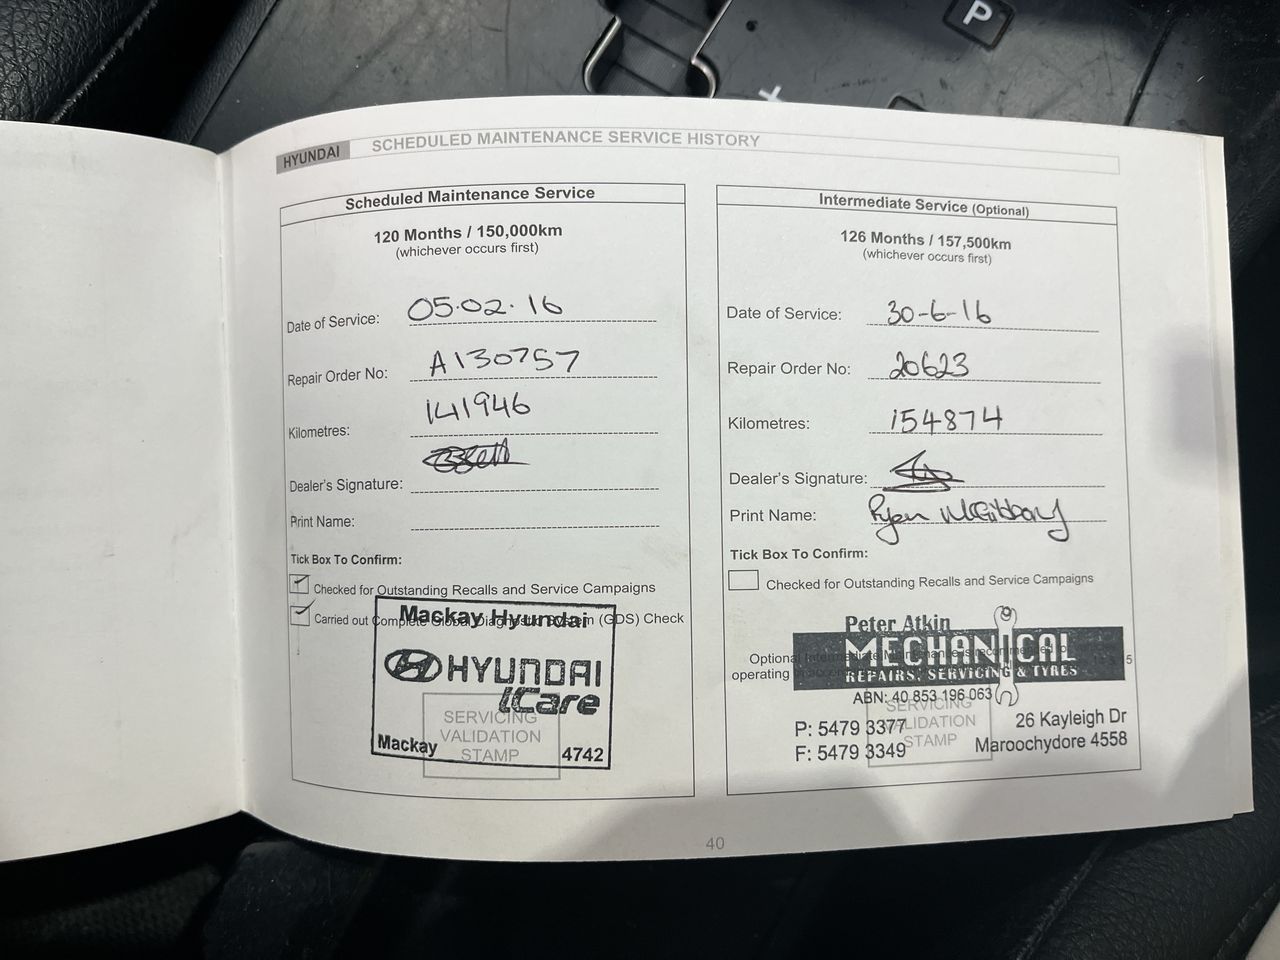 P
+
HYUNDAI
SCHEDULED MAINTENANCE SERVICE HISTORY
Scheduled Maintenance Service
120 Months / 150,000km
(whichever occurs first)
Date of Service: 05.02.16
Repair Order No: A130757
Kilometres: 141946
Dealer's Signature:
Print Name:
Tick Box To Confirm:
Checked for Outstanding Recalls and Service Campaigns
Carried out Complete Global Diagnostic System (GDS) Check
Mackay Hyundai
HYUNDAI
iCare
SERVICING
VALIDATION
STAMP
Mackay 4742
Intermediate Service (Optional)
126 Months / 157,500km
(whichever occurs first)
Date of Service: 30-6-16
Repair Order No: 20623
Kilometres: 154874
Dealer's Signature:
Print Name: Ryan McGibbony
Tick Box To Confirm:
Checked for Outstanding Recalls and Service Campaigns
Optional Intermediate Maintenance is recommended
operating
Peter Atkin
MECHANICAL
REPAIRS, SERVICING & TYRES
ABN: 40 853 196 063
SERVICING
VALIDATION
STAMP
P: 5479 3377
F: 5479 3349
26 Kayleigh Dr
Maroochydore 4558
40